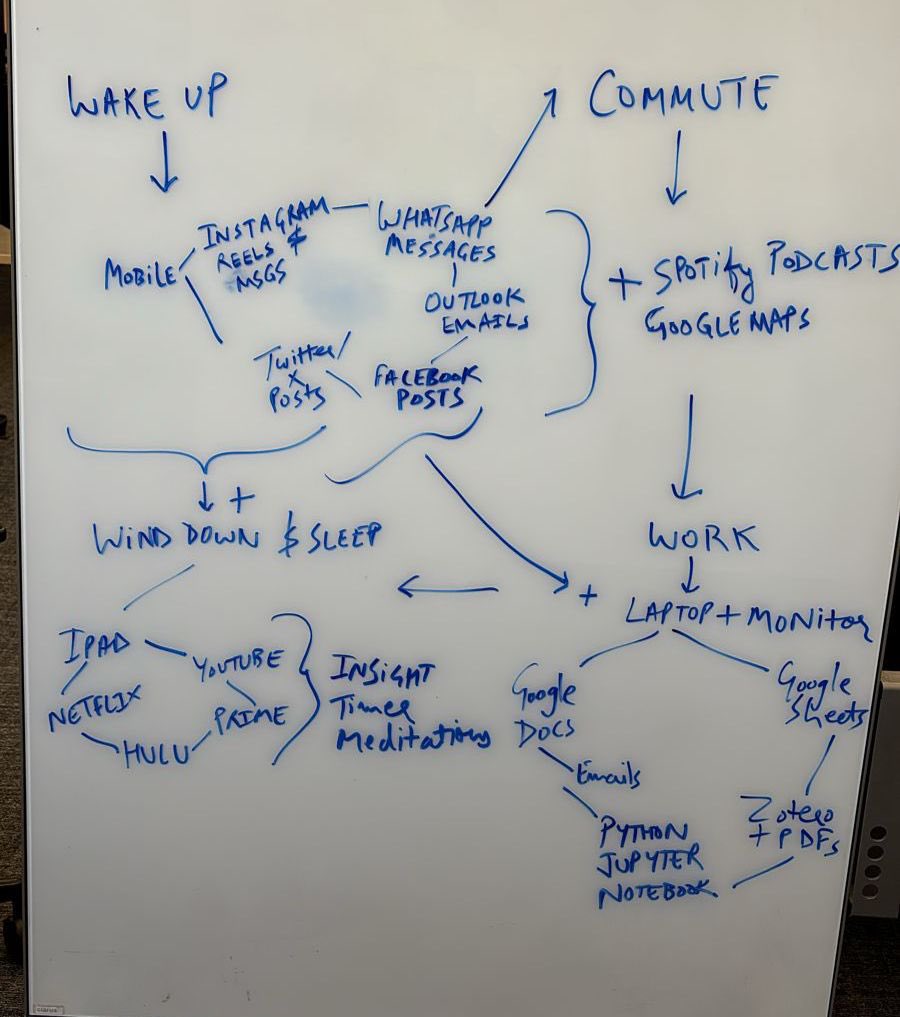 WAKE UP
COMMUTE
MOBILE
INSTAGRAM
REELS &
MSGS
WHATSAPP
MESSAGES
OUTLOOK
EMAILS
FACEBOOK
POSTS
Twitter/
X
Posts
+ SPOTIFY PODCASTS
GOOGLE MAPS
WORK
+ LAPTOP + MONITOR
Google
DOCS
Emails
PYTHON
JUPYTER
NOTEBOOK
Google
Sheets
Zotero
+ PDFs
+
WIND DOWN & SLEEP
IPAD
YOUTUBE
NETFLIX
PRIME
HULU
INSIGHT
Timer
Meditations